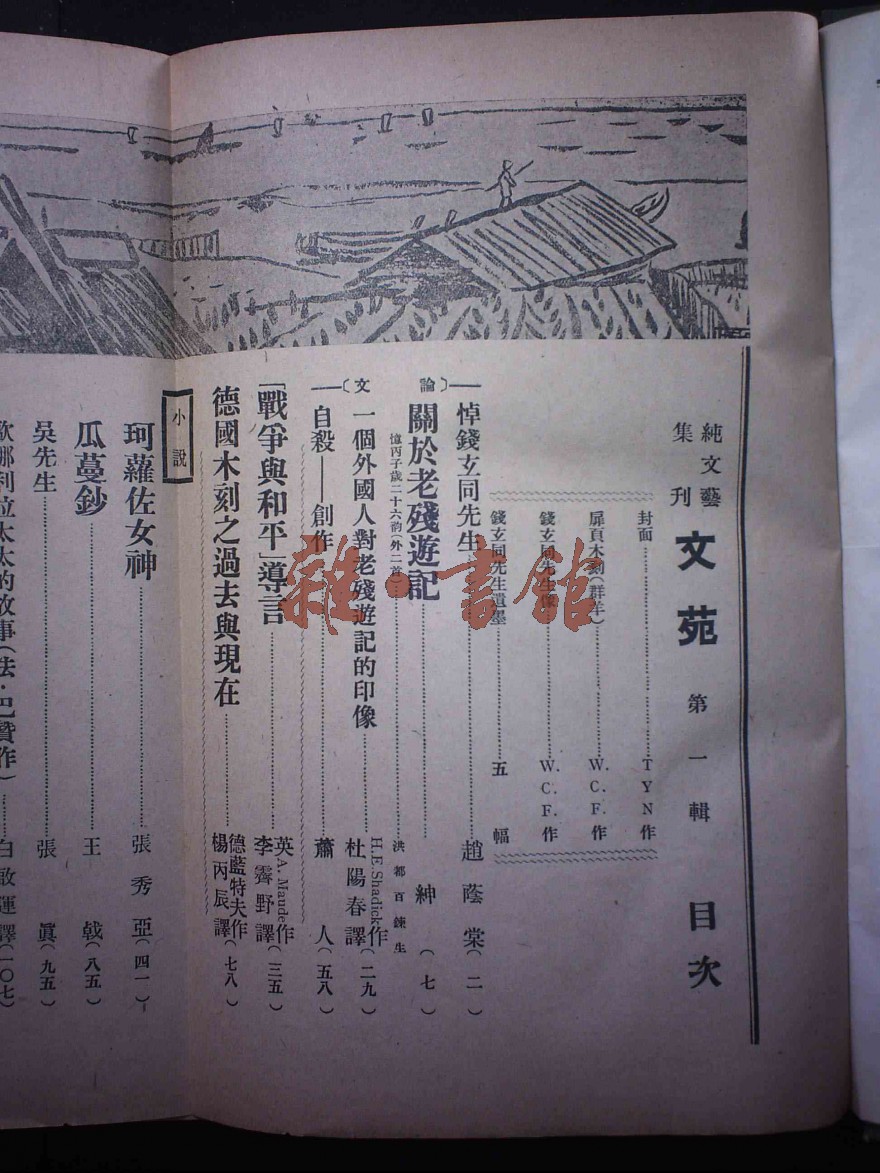 純文藝集刊 文苑 第一輯 目次
封面……TYN作
扉頁木刻(群羊)……W.C.F.作
錢玄同先生像……W.C.F.作
錢玄同先生遺墨……五幅
論文
悼錢玄同先生……趙蔭棠(二)
關於老殘遊記……紳(七)
憶丙子歲二十六韵(外二首)……洪都百鍊生
一個外國人對老殘遊記的印像……H.E.Shadick作 杜陽春譯(二九)
自殺——創作……蕭人(五八)
「戰爭與和平」導言……英A.Maude作 李霽野譯(三五)
德國木刻之過去與現在……德藍特夫作 楊丙辰譯(七八)
小說
珂蘿佐女神……張秀亞(四一)
瓜蔓鈔……王戟(八五)
吳先生……張眞(九五)
那利拉太太的故事(法·巴贊作)……白敢運譯(一〇七)
雜·書館